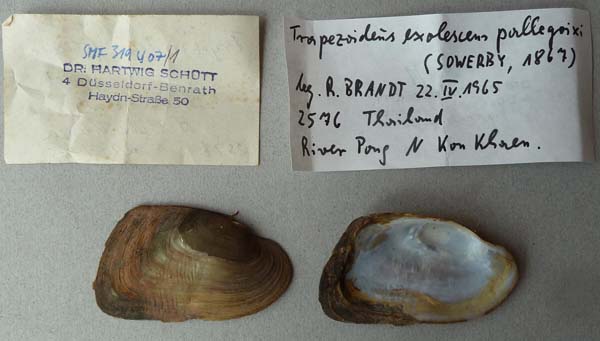 SMF 319407/1
DR. HARTWIG SCHÜTT
4 Düsseldorf-Benrath
Haydn-Straße 50
Trapezoideus exolescens pallegoixi
(SOWERBY, 1867)
leg. R. BRANDT 22.IV.1965
2576 Thailand
River Pong N Kon Khaen.